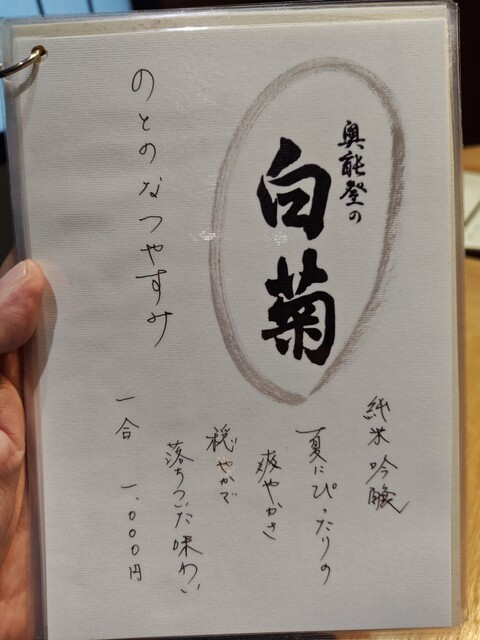 奥能登の
白菊
のとのなつやすみ
純米吟醸
夏にぴったりの
爽やかさ
穏やかで
落ちついた味わい
一合 1,000円